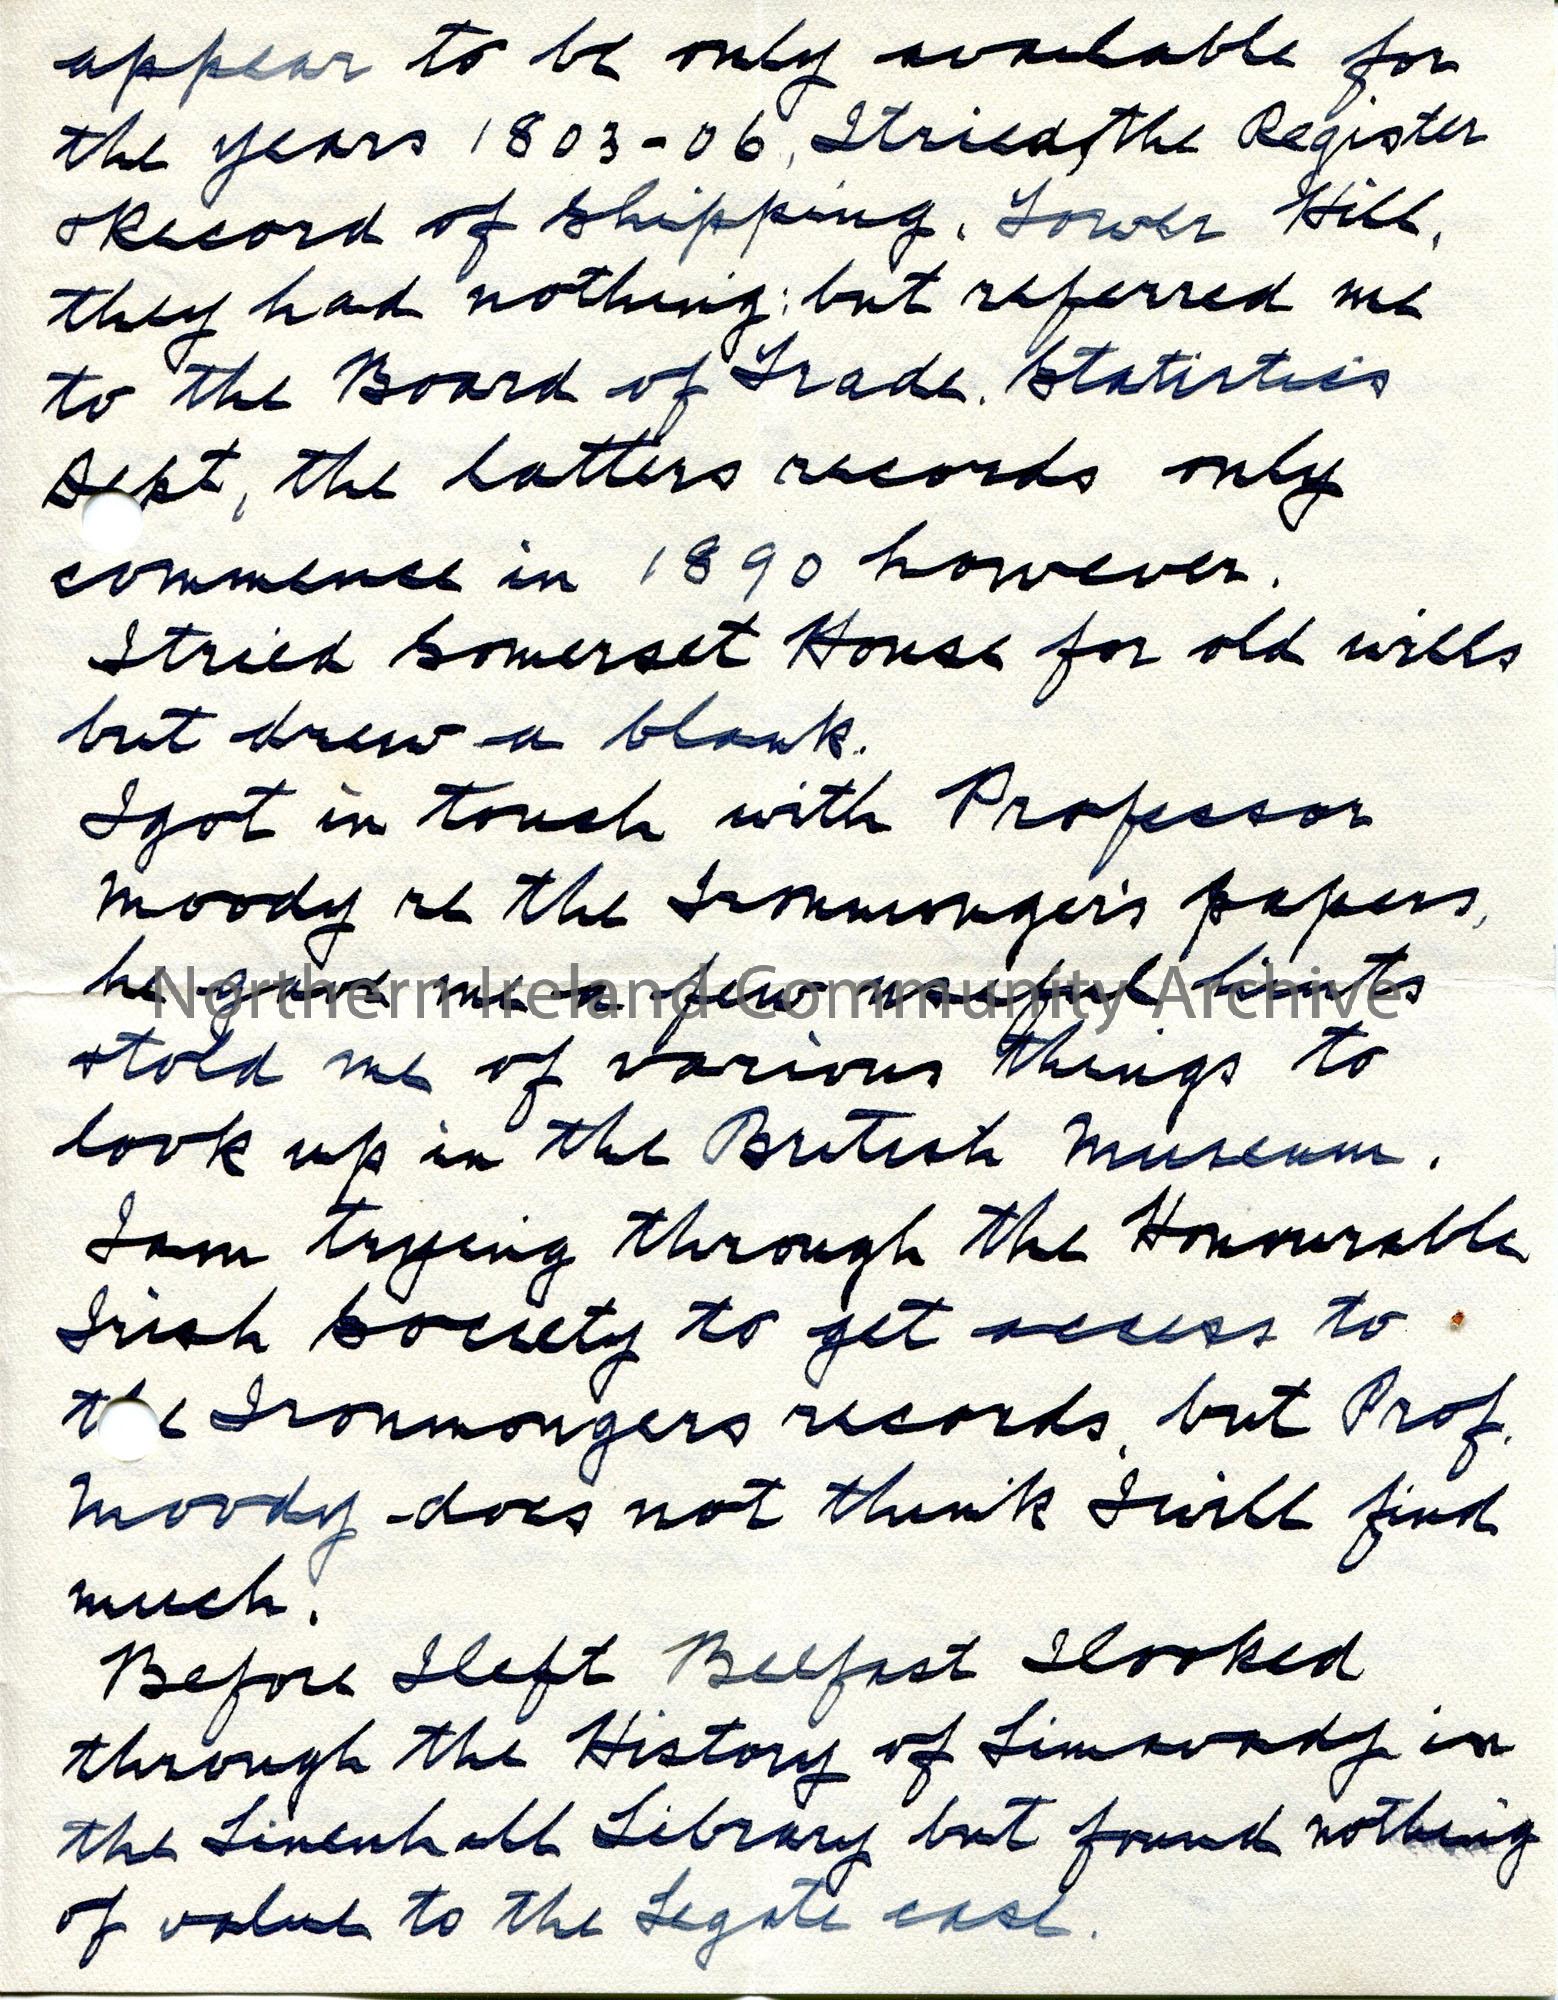 appear to be only available for
the years 1803-06, I tried, the Register
& Record of Shipping, Tower Hill,
they had nothing; but referred me
to the Board of Trade. Statistics
Dept, the latters records only
commence in 1890 however.
I tried Somerset House for old wills
but drew a blank.
I got in touch with Professor
Moody re the Ironmonger's papers,
he gave me a few useful hints
Northern Ireland Community Archive
& told me of various things to
look up in the British Museum.
I am trying through the Honourable
Irish Society to get access to
the Ironmongers records, but Prof.
Moody does not think I will find
much.
Before I left Belfast I looked
through the History of Limavady in
the Linenhall Library but found nothing
of value to the Legate case.